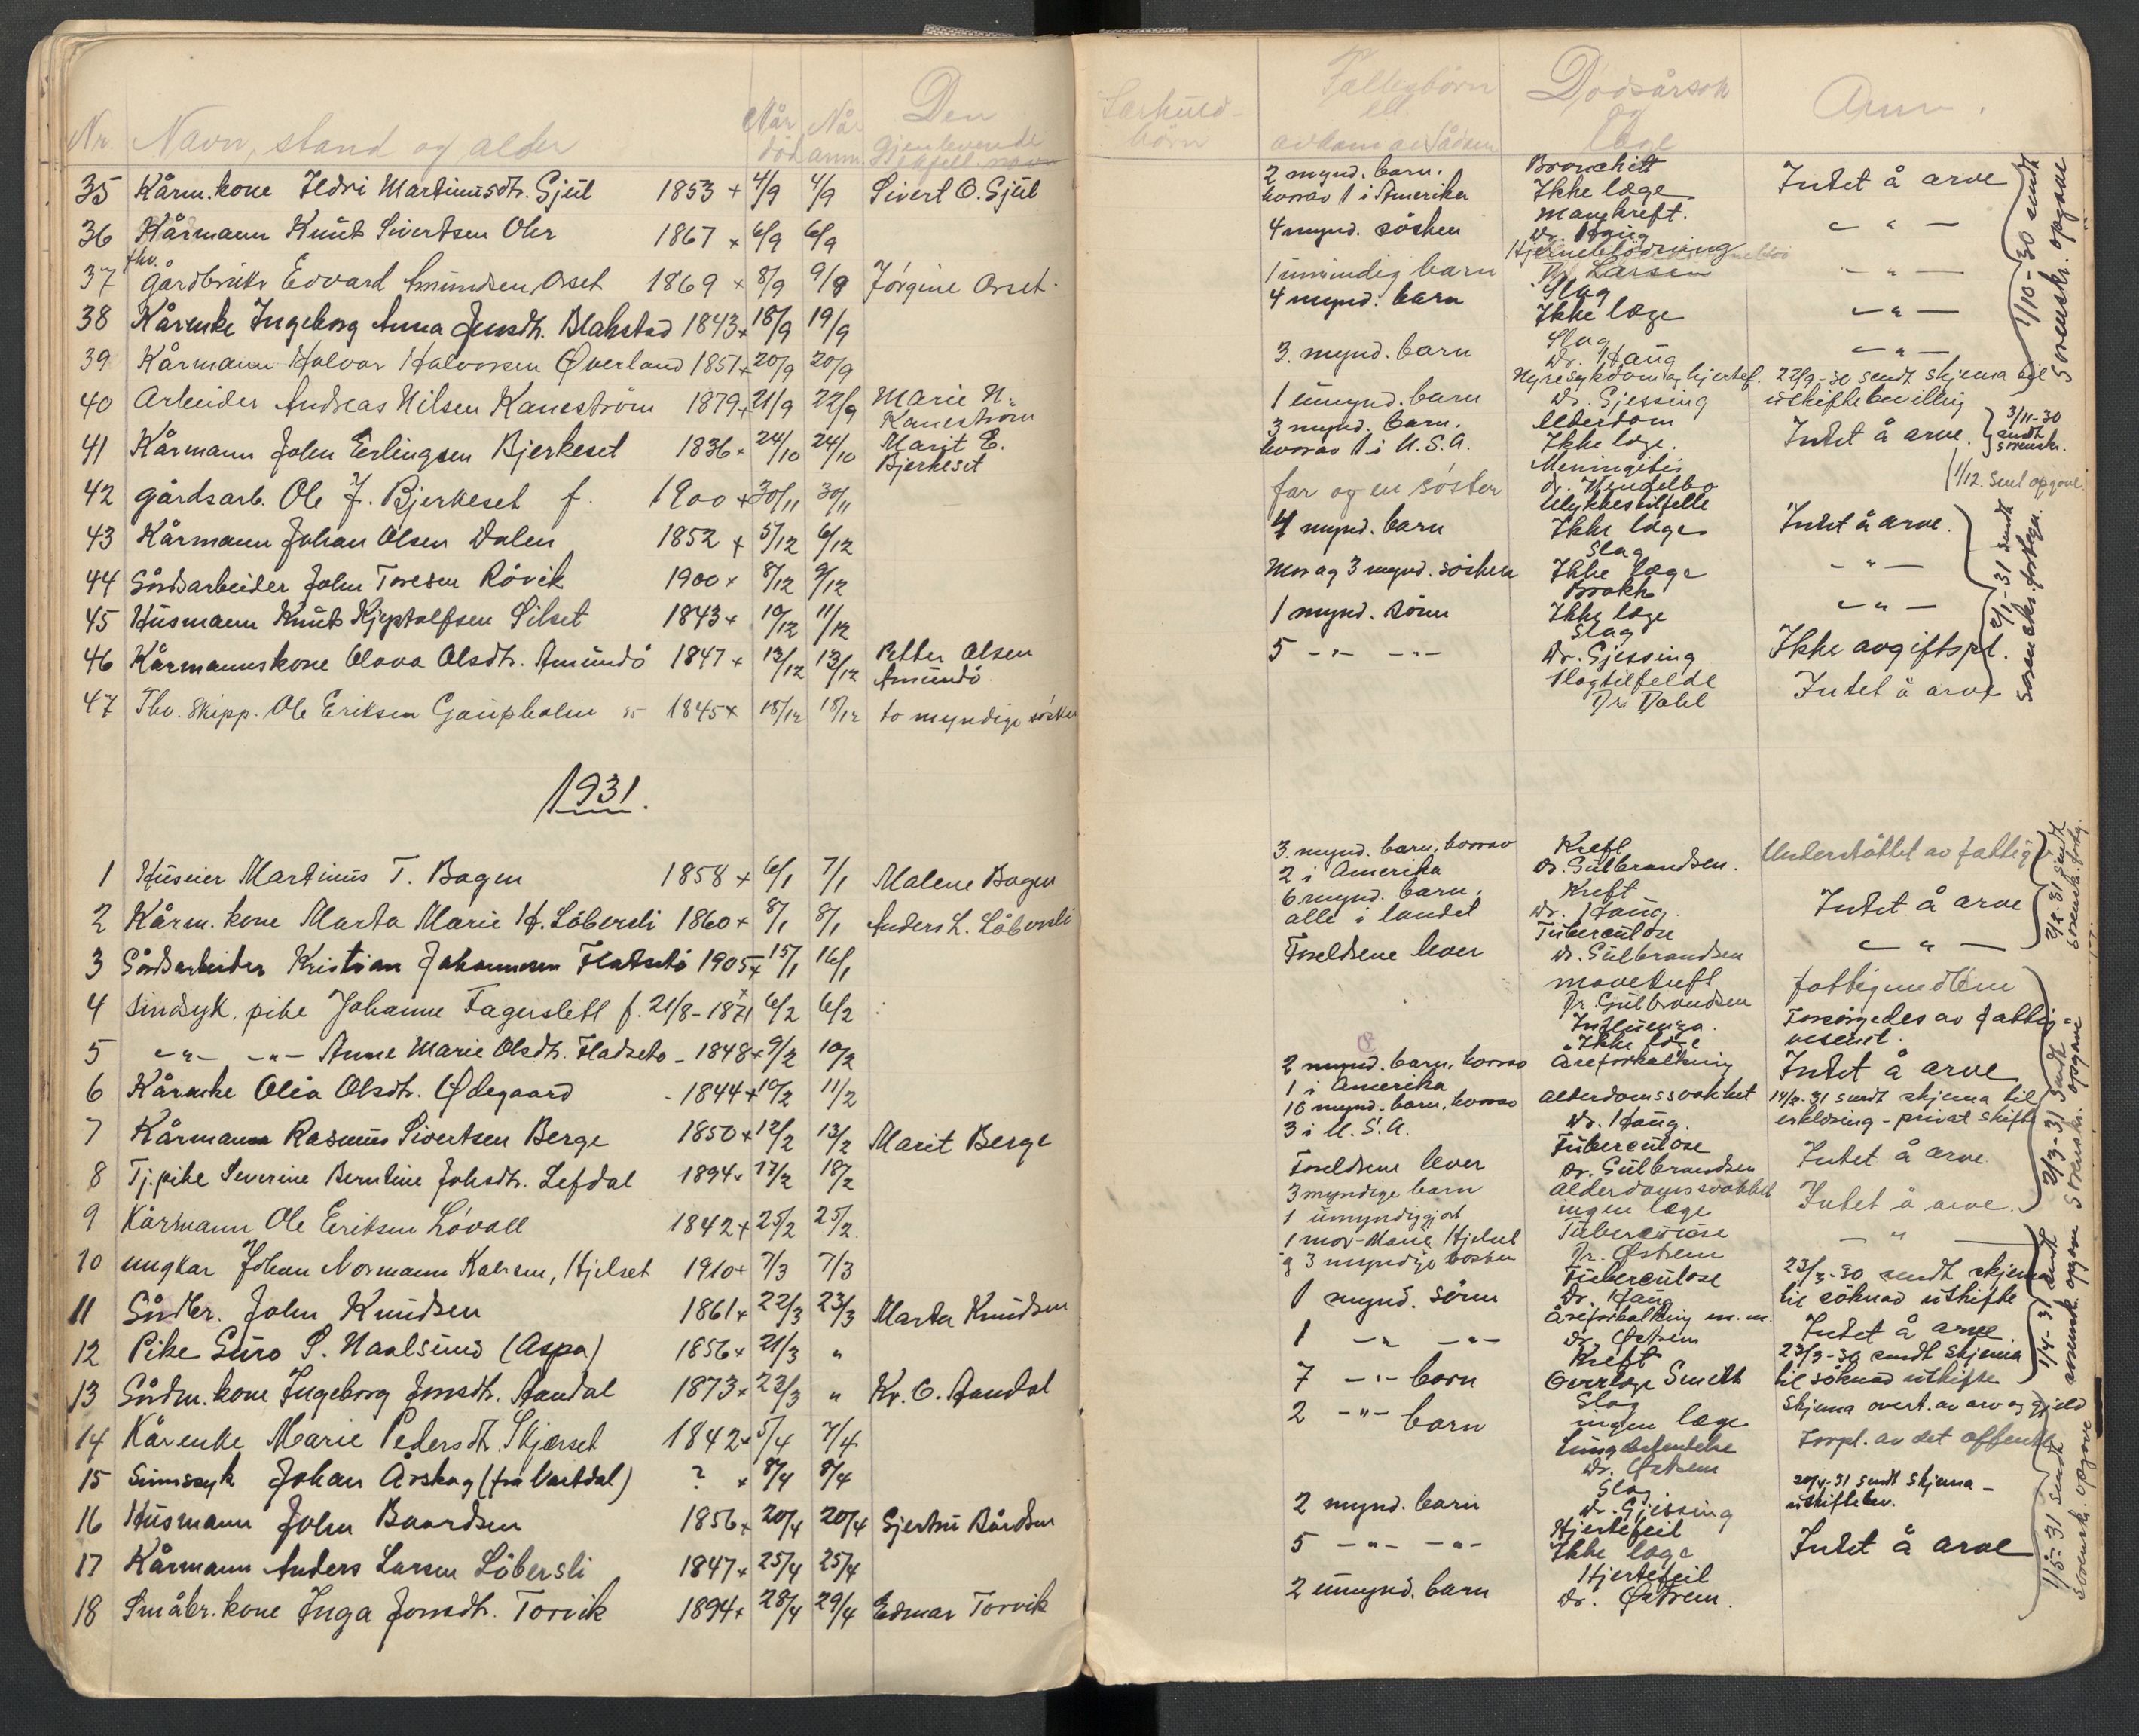 Nr. Navn, stand og alder Når død Når anm. Den gjenlevende Særkuld- børn Fællesbörn ell. avkom av sådan Dödsårsak og læge Anm.
35 Kårm.kone Ildri Martinusdtr. Gjül 1853 + 4/9 4/9 Sivert O. Gjül 2 mynd. barn. hvorav 1 i Amerika Bronchitt Ikke læge Intet å arve
36 Kårmann Knut Sivertsen Ohr 1867 + 6/9 6/9 4 mynd. söshen Mavekreft. Dr. Haug — " —
37 fhv. Gårdbruker Edvard Amundsen Orset 1869 + 8/9 9/9 Jörgine Orset. 1 umindig barn Hjerneblödning Dr. Larsen — " —
38 Kårenke Ingeborg Anna Jensdtr. Blakstad 1843 + 18/9 19/9 4 mynd. barn Slag Ikke læge — " —
39 Kårmann Halvor Halvorsen Överland 1851 + 20/9 20/9 3. mynd. barn Slag Dr. Haug — " —
1/10-30 sendt Sorenskr. opgave
40 Arbeider Andreas Nilsen Kaneström 1879 + 21/9 22/9 Marie N. Kaneström 1 umynd. barn Nyresykdom og hjertef. Dr. Gjessing 22/9-30 sendt skjema til uskiftebevilling
41 Kårmann John Erlingsen Bjerkeset 1836 + 24/10 24/10 Marit E. Bjerkeset 3 mynd. barn. hvorav 1 i U.S.A. Alderdom Ikke læge. Intet å arve. 3/11-30 sendt sorenskr.
42 gårdsarb. Ole J. Bjerkeset f. 1900 + 30/11 30/11 far og en söster Meningitis dr. Hendelbo 1/12. Sent opgave
43 Kårmann Johan Olsen Dalen 1852 + 5/12 6/12 4 mynd. barn Ulykkestilfelle Ikke læge Intet å arve.
44 Gårdsarbeider John Toresen Rövik 1900 + 8/12 9/12 Mor og 3 mynd. söshen Slag Ikke læge — " —
45 Husmann Knut Silset 1843 + 10/12 11/12 1 mynd. sönn Brokk Ikke læge — " —
46 Kårmannskone Olava Olsdtr. Amundö 1847 + 13/12 13/12 Petter Olsen Amundö 5 -"- -"- Slag Dr. Gjessing Ikke avgiftspl.
47 Fhv. Skipp. Ole Eriksen Gaupholm 85 1845 + 18/12 18/12 to myndige sösken Slagtilfelde Dr. Dahl Intet å arve
2/1-31 sendt Sorenskr. fortegn.
1931.
1 Husier Martinus T. Bogen 1858 + 6/1 7/1 Malene Bogen 3. mynd. barn, hvorav 2 i Amerika Kreft Dr. Gülbrandsen. Understöttet av fattig
2 Kårm. kone Marta Marie H. Löbersli 1860 + 8/1 8/1 Anders L. Löbersli 6 mynd. barn. alle i landet Kreft Dr. Haug. Intet å arve
3 Gårdsarbeider Kristian Johannesen Fladsetö 1905 + 15/1 16/1 Foreldrene lever Tuberculose Dr. Gülbrandsen — " —
2/2-31 sendt Sorenskr. fortg.
4 Sindsyk. pike Johanne Fagerslett f. 21/8-1871 + 6/2 6/2 mavekreft Dr. Gülbrandsen fattigmedlem
5 -"- -"- Anne Marie Olsdtr. Fladsetö - 1848 + 9/2 10/2 Influenza. Ikke læge Forsörgedes av fattigvesenet.
6 Kårenke Olia Olsdtr. Ödegaard - 1844 + 10/2 11/2 2 mynd. barn, hvorav 1 i Amerika Åreforkalkning Intet å arve
7 Kårmann Rasmus Sivertsen Berge 1850 + 12/2 13/2 Marit Berge 10 mynd. barn, hvorav 3 i U.S.A. Alderdomssvakhet Dr. Haug. 14/2-31 sendt skjema til erklæring - privat skifte
8 Tj.pike Severine Berntine Johsdtr. Lefdal 1894 + 17/2 18/2 Foreldrene lever Tuberculose Dr. Gülbrandsen Intet å arve
9 Kårmann Ole Eriksen Lövoll 1842 + 25/2 25/2 3 myndige barn 1 umyndiggjort alderdomssvakhet ingen læge Intet å arve.
2/3-31 sendt Sorenskr. opgave
10 ungkar Johan Normann Karlsen, Hjelset 1910 + 7/3 7/3 1 mor-Marie Hjelset og 3 myndige sösken Tuberculose Dr. Östrem — " —
11 Gårdbr. John Knudsen 1861 + 22/3 23/3 Marta Knudsen 1 mynd. sönn Tuberculose Dr. Haug 23/3-30 sendt skjema til söknad uskifte
12 Pike Guro S. Naalsund (Aspa) 1856 + 21/3 " 1 -"- -"- Åreforkalkning m. m. Dr. Östrem Intet å arve
13 Gårdm. kone Ingeborg Jonsdtr. Aandal 1873 + 22/3 " Kr. O. Aandal 7 -"- barn Kreft Overlæge Smith 23/3-30 sendt skjema til söknad uskifte
1/4-31 sendt sorensk. opgave
14 Kårenke Marie Pedersdtr. Skjørset 1842 + 5/4 7/4 2 -"- barn Slag ingen læge Skjema overt. av arv og gjeld
15 Sinnssyk Johan Årskog (fra Vartdal) ? + 8/4 8/4 Lungebetendelse Dr. Östrem Forpl. av det offentl.
16 Husmann John Baardsen 1856 + 20/4 20/4 Gjertru Bårdsen 2 mynd. barn Slag Dr. Gjessing 20/4-31 sendt skjema - uskiftebev.
17 Kårmann Anders Larsen Löbersli 1847 + 25/4 25/4 5 -"- -"- Hjertefeil Ikke læge Intet å arve
18 Småbr. kone Inga Jonsdtr. Torvik 1894 + 28/4 29/4 Edmar Torvik 2 umynd. barn Hjertefeil Dr. Östrem.
1/5-31 sendt Sorensk. opgave